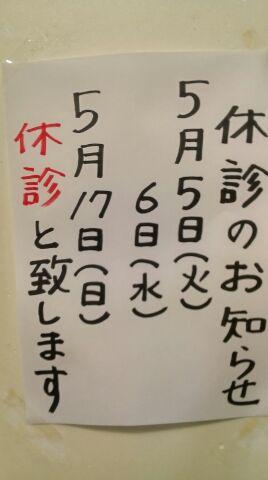 休診のお知らせ
5月5日(火)
6日(水)
5月17日(日)
休診と致します